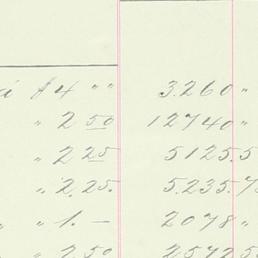 à $4 " " 3.260 "
" 2 50 12740 "
" 2 25 5125.5
" 2.25. 5.235.7
" " 1. — 2078 "
" 2.50 2572 50